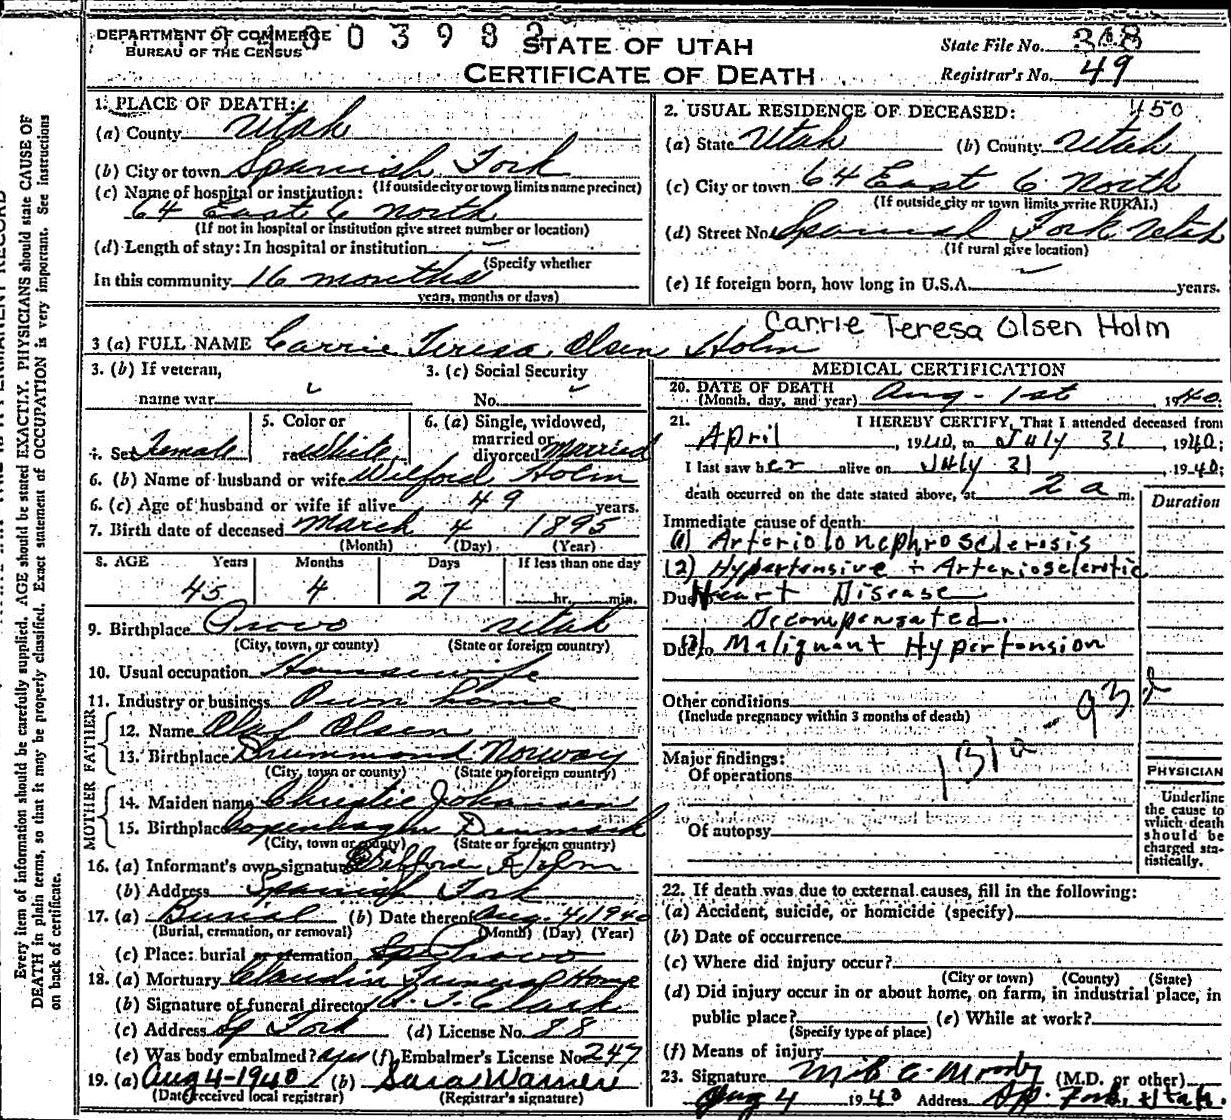 DEPARTMENT OF COMMERCE
BUREAU OF THE CENSUS
STATE OF UTAH
CERTIFICATE OF DEATH
State File No. 348
Registrar's No. 49
1. PLACE OF DEATH:
(a) County Utah
(b) City or town Spanish Fork
(If outside city or town limits name precinct)
(c) Name of hospital or institution:
64 East 6 North
(If not in hospital or institution give street number or location)
(d) Length of stay: In hospital or institution
(Specify whether
In this community 16 months
years, months or days)
2. USUAL RESIDENCE OF DECEASED: 450
(a) State Utah (b) County Utah
(c) City or town 64 East 6 North
(If outside city or town limits write RURAL)
(d) Street No. Spanish Fork Utah
(If rural give location)
(e) If foreign born, how long in U.S.A. years.
Carrie Teresa Olsen Holm
3 (a) FULL NAME Carrie Teresa Olsen Holm
3. (b) If veteran,
name war
3. (c) Social Security
No.
4. Sex Female
5. Color or
race White
6. (a) Single, widowed,
married or
divorced Married
6. (b) Name of husband or wife Wilford Holm
6. (c) Age of husband or wife if alive 49 years.
7. Birth date of deceased March 4 1895
(Month) (Day) (Year)
8. AGE Years Months Days If less than one day
45 4 27 hr. min.
9. Birthplace Provo Utah
(City, town, or county) (State or foreign country)
10. Usual occupation Housewife
11. Industry or business Own home
FATHER
12. Name Olaf Olsen
13. Birthplace Drummond Norway
(City, town or county) (State or foreign country)
MOTHER
14. Maiden name Christie Johansen
15. Birthplace Copenhagen Denmark
(City, town or county) (State or foreign country)
16. (a) Informant's own signature Wilford Holm
(b) Address Spanish Fork
17. (a) Burial (b) Date thereof Aug. 4, 1940
(Burial, cremation, or removal) (Month) (Day) (Year)
(c) Place: burial or cremation Provo
18. (a) Mortuary Claudin Funeral Home
(b) Signature of funeral director A. J. Clark
(c) Address Sp Fork (d) License No. 88
(e) Was body embalmed? yes (f) Embalmer's License No. 247
19. (a) Aug 4-1940 (b) Sara Warner
(Date received local registrar) (Registrar's signature)
MEDICAL CERTIFICATION
20. DATE OF DEATH
(Month, day, and year) Aug - 1st 1940.
21. I HEREBY CERTIFY, That I attended deceased from
April, 1940, to July 31, 1940;
I last saw her alive on July 31, 1940;
death occurred on the date stated above, at 2 a m.
Duration
Immediate cause of death
(1) Arteriolonephrosclerosis
(2) Hypertensive + Arteriosclerotic
Due to Heart Disease
Decompensated.
Due to (3) Malignant Hypertension
Other conditions
(Include pregnancy within 3 months of death)
93d
131a
Major findings:
Of operations
Of autopsy
PHYSICIAN
Underline
the cause to
which death
should be
charged sta-
tistically.
22. If death was due to external causes, fill in the following:
(a) Accident, suicide, or homicide (specify)
(b) Date of occurrence
(c) Where did injury occur?
(City or town) (County) (State)
(d) Did injury occur in or about home, on farm, in industrial place, in
public place? (e) While at work?
(Specify type of place)
(f) Means of injury
23. Signature A. Moody (M.D. or other)
Aug 4 1940 Address Sp. Fork, Utah
Every item of information should be carefully supplied. AGE should be stated EXACTLY. PHYSICIANS should state CAUSE OF
DEATH in plain terms, so that it may be properly classified. Exact statement of OCCUPATION is very important. See instructions
on back of certificate.